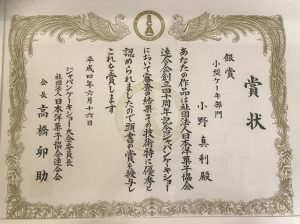 賞状
銀賞
小型ケーキ部門
小野真利殿
あなたの作品は社団法人日本洋菓子協会
連合会創立四十周年記念ジャパンケーキショー
において審査の結果その技術特に優秀と
認められましたので頭書の賞を授与し
これを賞します
平成四年六月十六日
ジャパンケーキショー大会委員長
社団法人日本洋菓子協会連合会
会長 高橋卯助